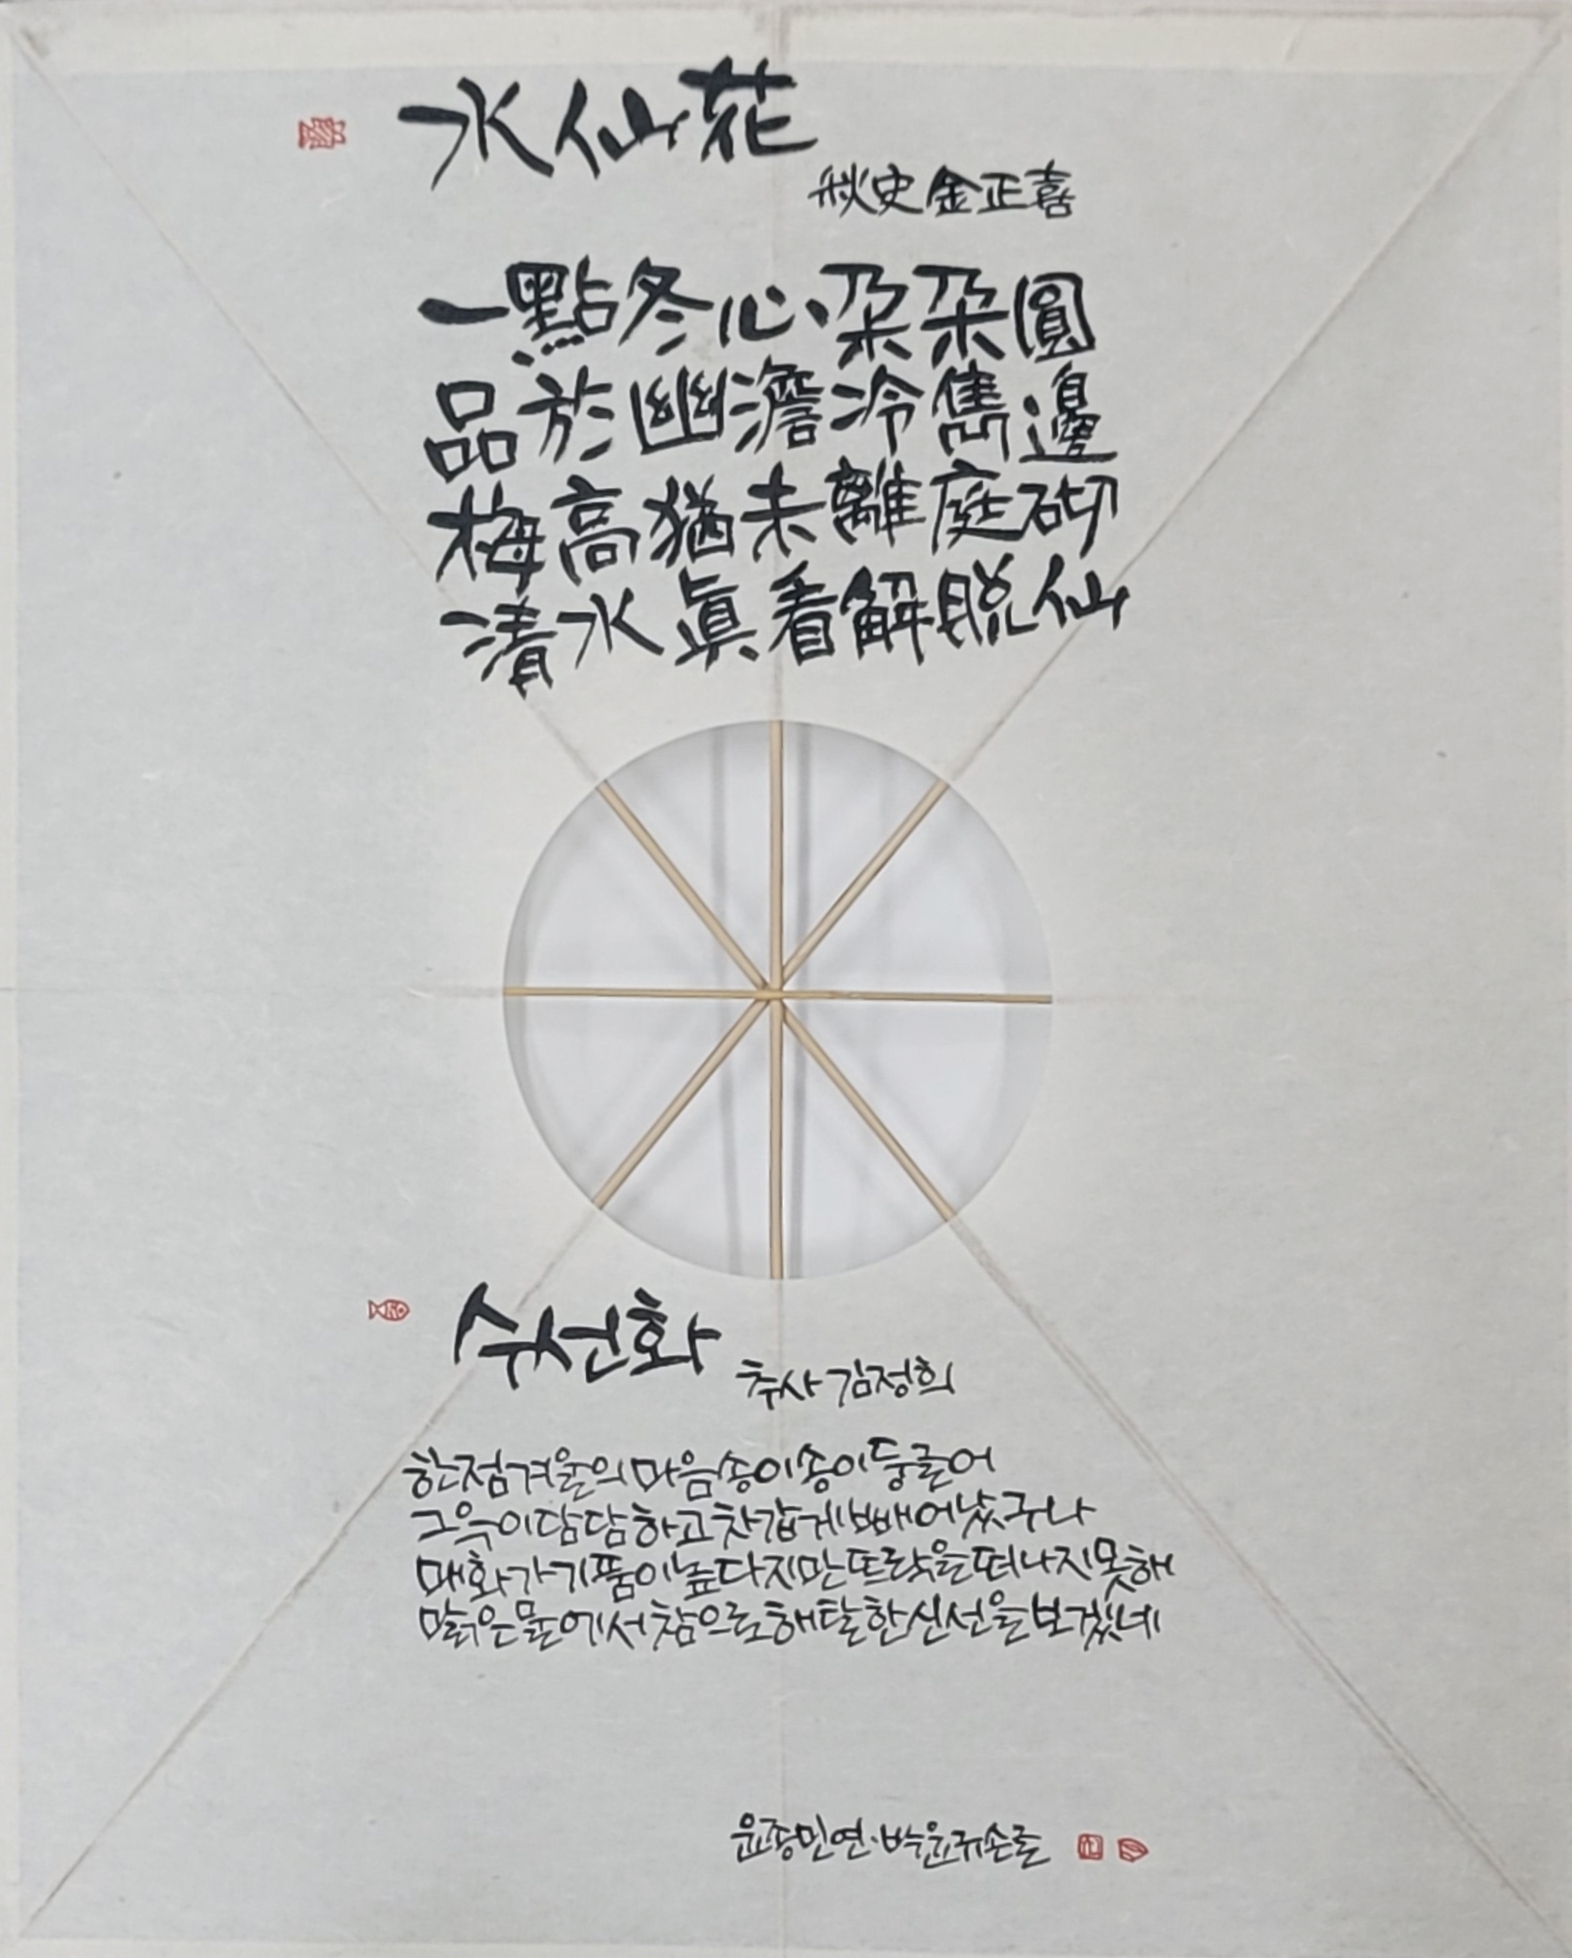 水仙花
秋史金正喜
一點冬心朶朶圓
品於幽澹冷雋邊
梅高猶未離庭砌
淸水眞看解脫仙
수선화
추사 김정희
한점 겨울의 마음 송이송이 둥글어
그윽이 담담하고 차갑게 빼어났구나
매화가 기품이 높다지만 뜨락을 떠나지 못해
맑은 물에서 참으로 해탈한 신선을 보겠네
윤종민연·박윤규손글